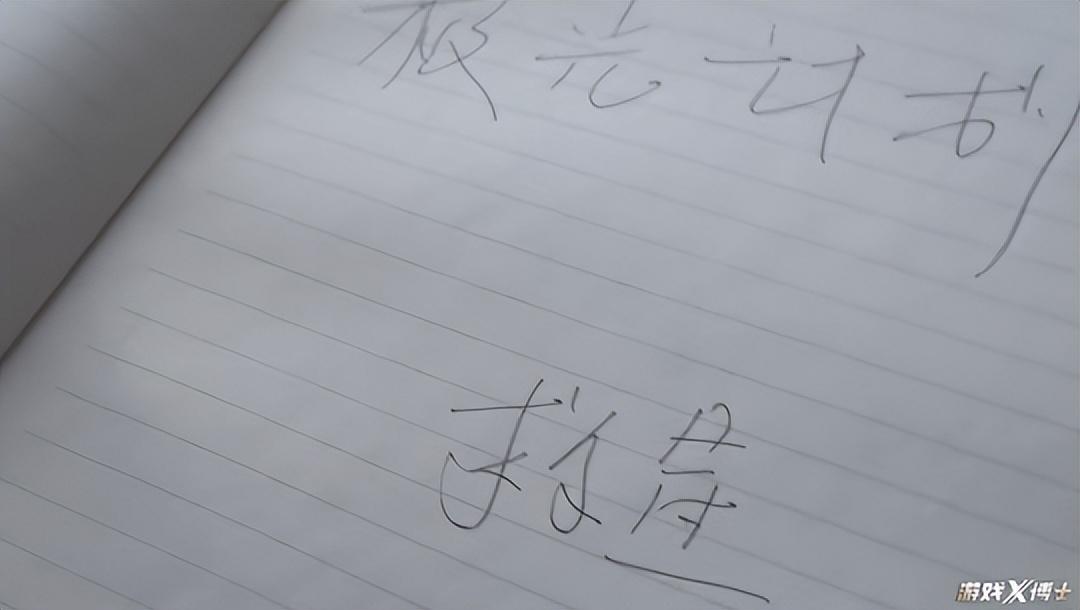 极光计划
游戏X博士